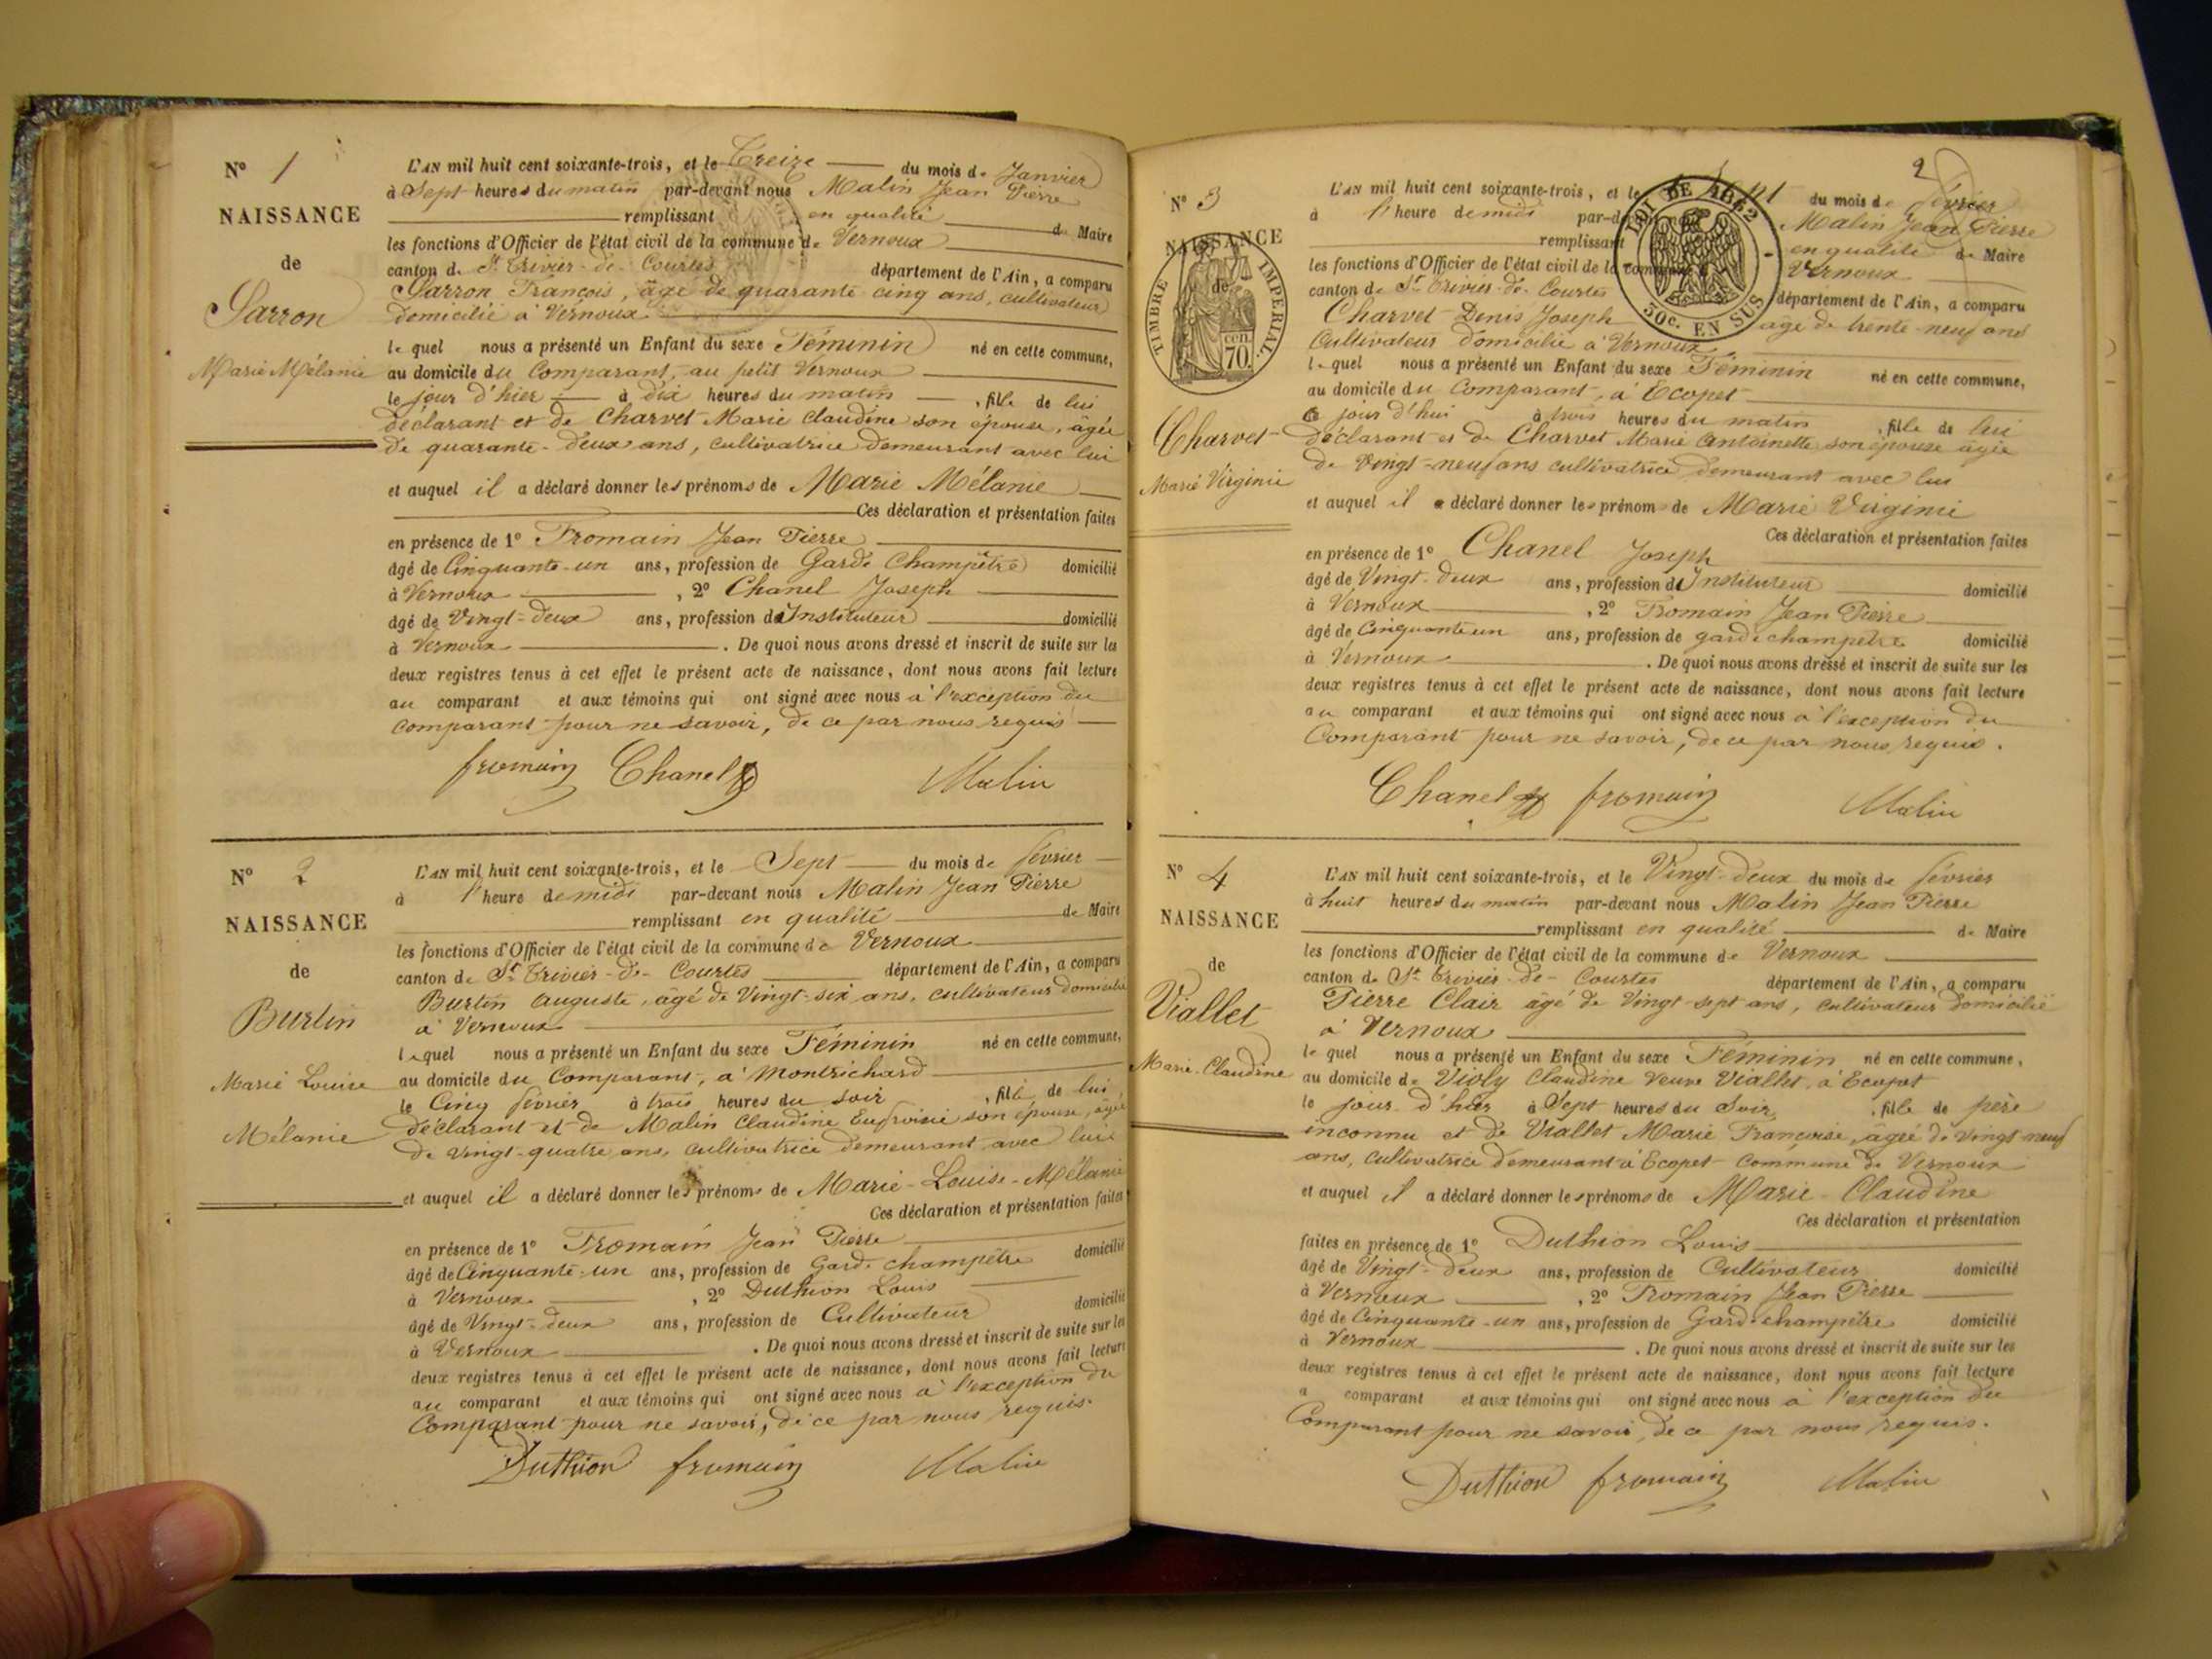 N° 1
NAISSANCE
de
Sarron
Marie Mélanie
L'AN mil huit cent soixante-trois, et le Treize du mois de Janvier
à Sept heures du matin par-devant nous Malin Jean Pierre
remplissant en qualité de Maire
les fonctions d'Officier de l'état civil de la commune de Vernoux
canton de St Trivier-de-Courtes département de l'Ain, a comparu
Sarron François, âgé de quarante cinq ans, cultivateur
domicilié à Vernoux
le quel nous a présenté un Enfant du sexe Féminin né en cette commune,
au domicile du Comparant, au petit Vernoux
le jour d'hier à dix heures du matin, fille de lui
déclarant et de Charvet Marie Claudine son épouse, âgée
de quarante-deux ans, cultivatrice demeurant avec lui
et auquel il a déclaré donner les prénoms de Marie Mélanie
Ces déclaration et présentation faites
en présence de 1° Fromain Jean Pierre
âgé de Cinquante-un ans, profession de Garde Champêtre domicilié
à Vernoux, 2° Chanel Joseph
âgé de Vingt-deux ans, profession d'Instituteur domicilié
à Vernoux. De quoi nous avons dressé et inscrit de suite sur les
deux registres tenus à cet effet le présent acte de naissance, dont nous avons fait lecture
au comparant et aux témoins qui ont signé avec nous à l'exception du
comparant pour ne savoir, de ce par nous requis
fromain Chanel Malin
N° 2
NAISSANCE
de
Burtin
Marie Louise
Mélanie
L'AN mil huit cent soixante-trois, et le Sept du mois de février
à l'heure de midi par-devant nous Malin Jean Pierre
remplissant en qualité de Maire
les fonctions d'Officier de l'état civil de la commune de Vernoux
canton de St Trivier-de-Courtes département de l'Ain, a comparu
Burtin Auguste, âgé de Vingt-six ans, cultivateur domicilié
à Vernoux
lequel nous a présenté un Enfant du sexe Féminin né en cette commune,
au domicile du Comparant, à Montrichard
le Cinq février à trois heures du soir, fille de lui
déclarant et de Malin Claudine Eufroisie son épouse, âgée
de vingt-quatre ans, cultivatrice demeurant avec lui
et auquel il a déclaré donner les prénoms de Marie-Louise-Mélanie
Ces déclaration et présentation faites
en présence de 1° Fromain Jean Pierre
âgé de Cinquante-un ans, profession de Garde champêtre domicilié
à Vernoux, 2° Duthion Louis
âgé de Vingt-deux ans, profession de Cultivateur domicilié
à Vernoux. De quoi nous avons dressé et inscrit de suite sur les
deux registres tenus à cet effet le présent acte de naissance, dont nous avons fait lecture
au comparant et aux témoins qui ont signé avec nous à l'exception du
Comparant pour ne savoir, de ce par nous requis.
Duthion fromain Malin
2
N° 3
NAISSANCE
de
TIMBRE IMPERIAL.
cen. 70.
Charvet
Marie Virginie
LOI DE 1862
50c. EN SUS
L'AN mil huit cent soixante-trois, et le Sept du mois de février
à l'heure de midi par-devant nous Malin Jean Pierre
remplissant en qualité de Maire
les fonctions d'Officier de l'état civil de la commune de Vernoux
canton de St Trivier-de-Courtes département de l'Ain, a comparu
Charvet Denis Joseph âgé de trente-neuf ans
Cultivateur domicilié à Vernoux
lequel nous a présenté un Enfant du sexe Féminin né en cette commune,
au domicile du Comparant, à Ecopet
ce jour d'hui à trois heures du matin, fille de lui
déclarant et de Charvet Marie Antoinette son épouse âgée
de Vingt-neuf ans cultivatrice demeurant avec lui
et auquel il a déclaré donner les prénoms de Marie Virginie
Ces déclaration et présentation faites
en présence de 1° Chanel Joseph
âgé de Vingt-deux ans, profession d'Instituteur domicilié
à Vernoux, 2° Fromain Jean Pierre
âgé de Cinquante un ans, profession de garde champêtre domicilié
à Vernoux. De quoi nous avons dressé et inscrit de suite sur les
deux registres tenus à cet effet le présent acte de naissance, dont nous avons fait lecture
au comparant et aux témoins qui ont signé avec nous à l'exception du
Comparant pour ne savoir, de ce par nous requis.
Chanel fromain Malin
N° 4
NAISSANCE
de
Viallet
Marie-Claudine
L'AN mil huit cent soixante-trois, et le Vingt-deux du mois de février
à huit heures du matin par-devant nous Malin Jean Pierre
remplissant en qualité de Maire
les fonctions d'Officier de l'état civil de la commune de Vernoux
canton de St Trivier-de-Courtes département de l'Ain, a comparu
Pierre Clair âgé de Vingt-sept ans, cultivateur domicilié
à Vernoux
le quel nous a présenté un Enfant du sexe Féminin né en cette commune,
au domicile de Violy Claudine Veuve Viallet, à Ecopet
le jour d'hier à Sept heures du Soir, fille de père
inconnu et de Viallet Marie Françoise, âgée de vingt-neuf
ans, cultivatrice demeurant à Ecopet Commune de Vernoux
et auquel il a déclaré donner les prénoms de Marie-Claudine
Ces déclaration et présentation
faites en présence de 1° Duthion Louis
âgé de Vingt-deux ans, profession de Cultivateur domicilié
à Vernoux, 2° Fromain Jean Pierre
âgé de Cinquante-un ans, profession de Garde champêtre domicilié
à Vernoux. De quoi nous avons dressé et inscrit de suite sur les
deux registres tenus à cet effet le présent acte de naissance, dont nous avons fait lecture
a comparant et aux témoins qui ont signé avec nous à l'exception du
Comparant pour ne savoir, de ce par nous requis.
Duthion fromain Malin